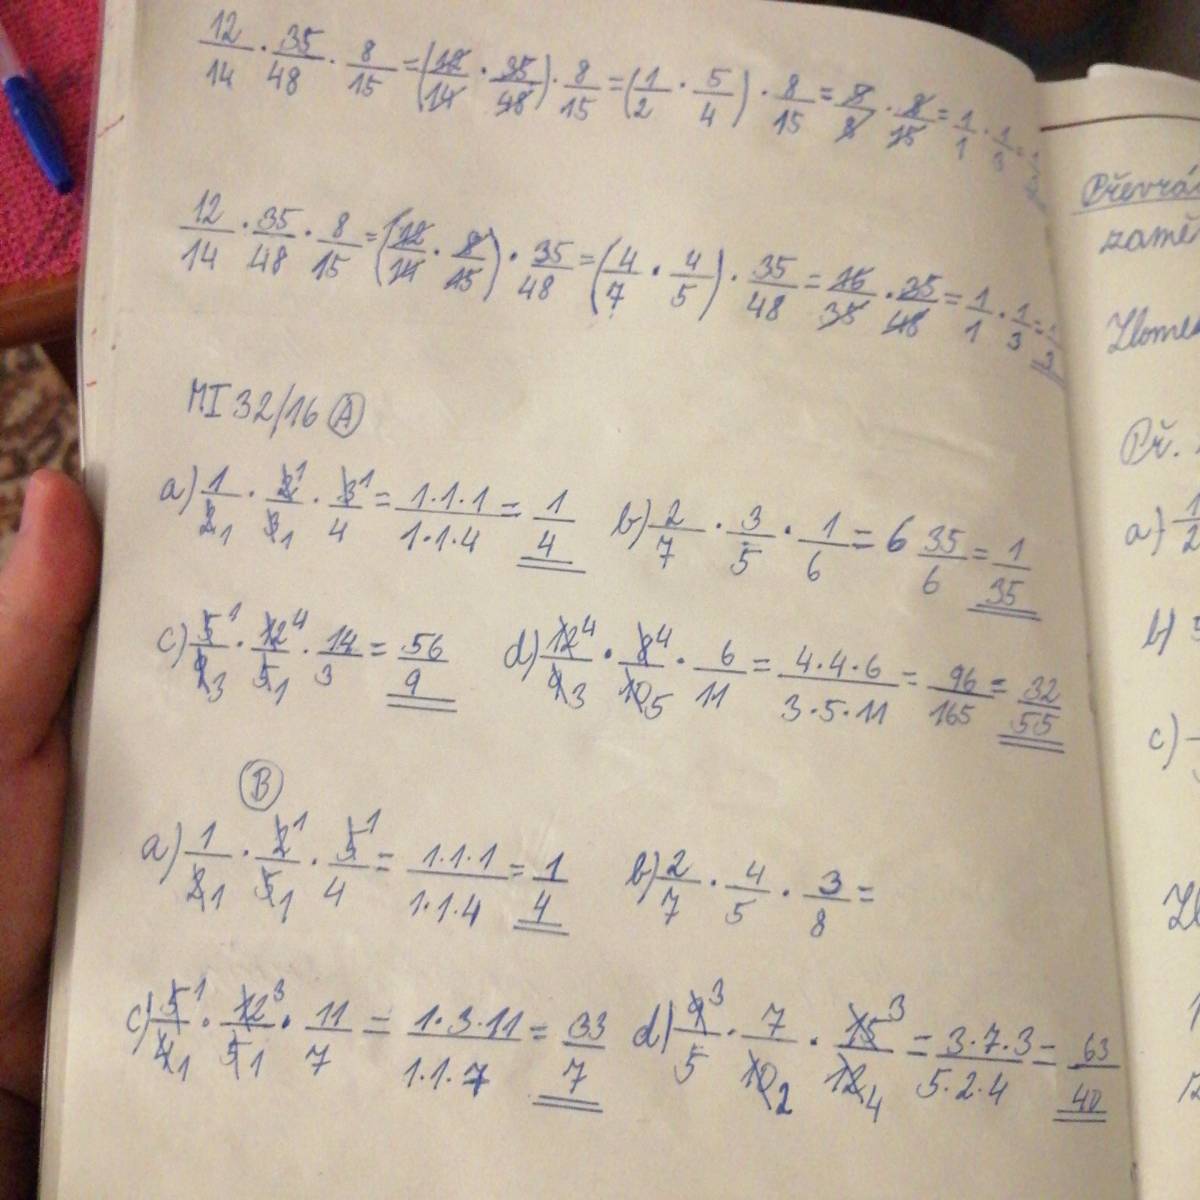 12/14 · 35/48 · 8/15 = (12/14 · 35/48) · 8/15 = (1/2 · 5/4) · 8/15 = 5/8 · 8/15 = 1/1 · 1/3 =
12/14 · 35/48 · 8/15 = (12/14 · 8/15) · 35/48 = (4/7 · 4/5) · 35/48 = 16/35 · 35/48 = 1/1 · 1/3 = 1/3
MI 32/16 A
a) 1/2 1 · 2 1/3 1 · 3 1/4 = 1·1·1/1·1·4 = 1/4 b) 2/7 · 3/5 · 1/6 = 6 35/6 = 1/35
c) 5 1/9 3 · 12 4/5 1 · 14/3 = 56/9 d) 12 4/9 3 · 8 4/10 5 · 6/11 = 4·4·6/3·5·11 = 96/165 = 32/55
B
a) 1/2 1 · 2 1/5 1 · 5 1/4 = 1·1·1/1·1·4 = 1/4 b) 2/7 · 4/5 · 3/8 =
c) 5 1/4 1 · 12 3/5 1 · 11/7 = 1·3·11/1·1·7 = 33/7 d) 9 3/5 · 7/10 2 · 15 3/12 4 = 3·7·3/5·2·4 = 63/40
Př.
a) 1/2
b)
c)